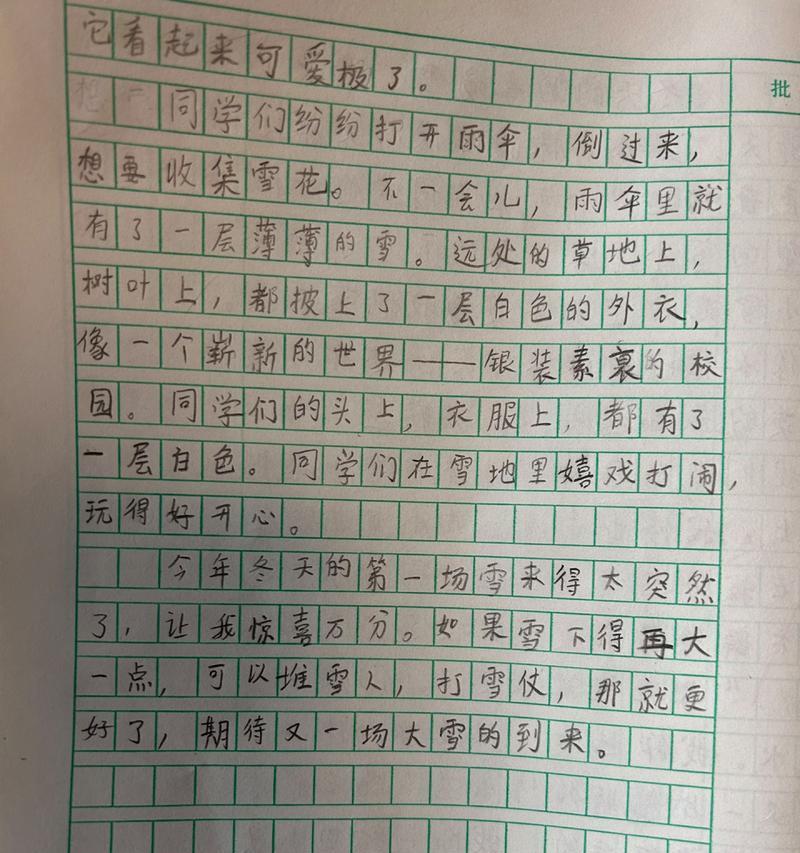 它看起来可爱极了。
批
同学们纷纷打开雨伞，倒过来，
想要收集雪花。不一会儿，雨伞里就
有了一层薄薄的雪。远处的草地上，
树叶上，都披上了一层白色的外衣，
像一个崭新的世界——银装素裹的校
园。同学们的头上，衣服上，都有了
一层白色。同学们在雪地里嬉戏打闹，
玩得好开心。
今年冬天的第一场雪来得太突然
了，让我惊喜万分。如果雪下得再大
一点，可以堆雪人，打雪仗，那就更
好了，期待又一场大雪的到来。